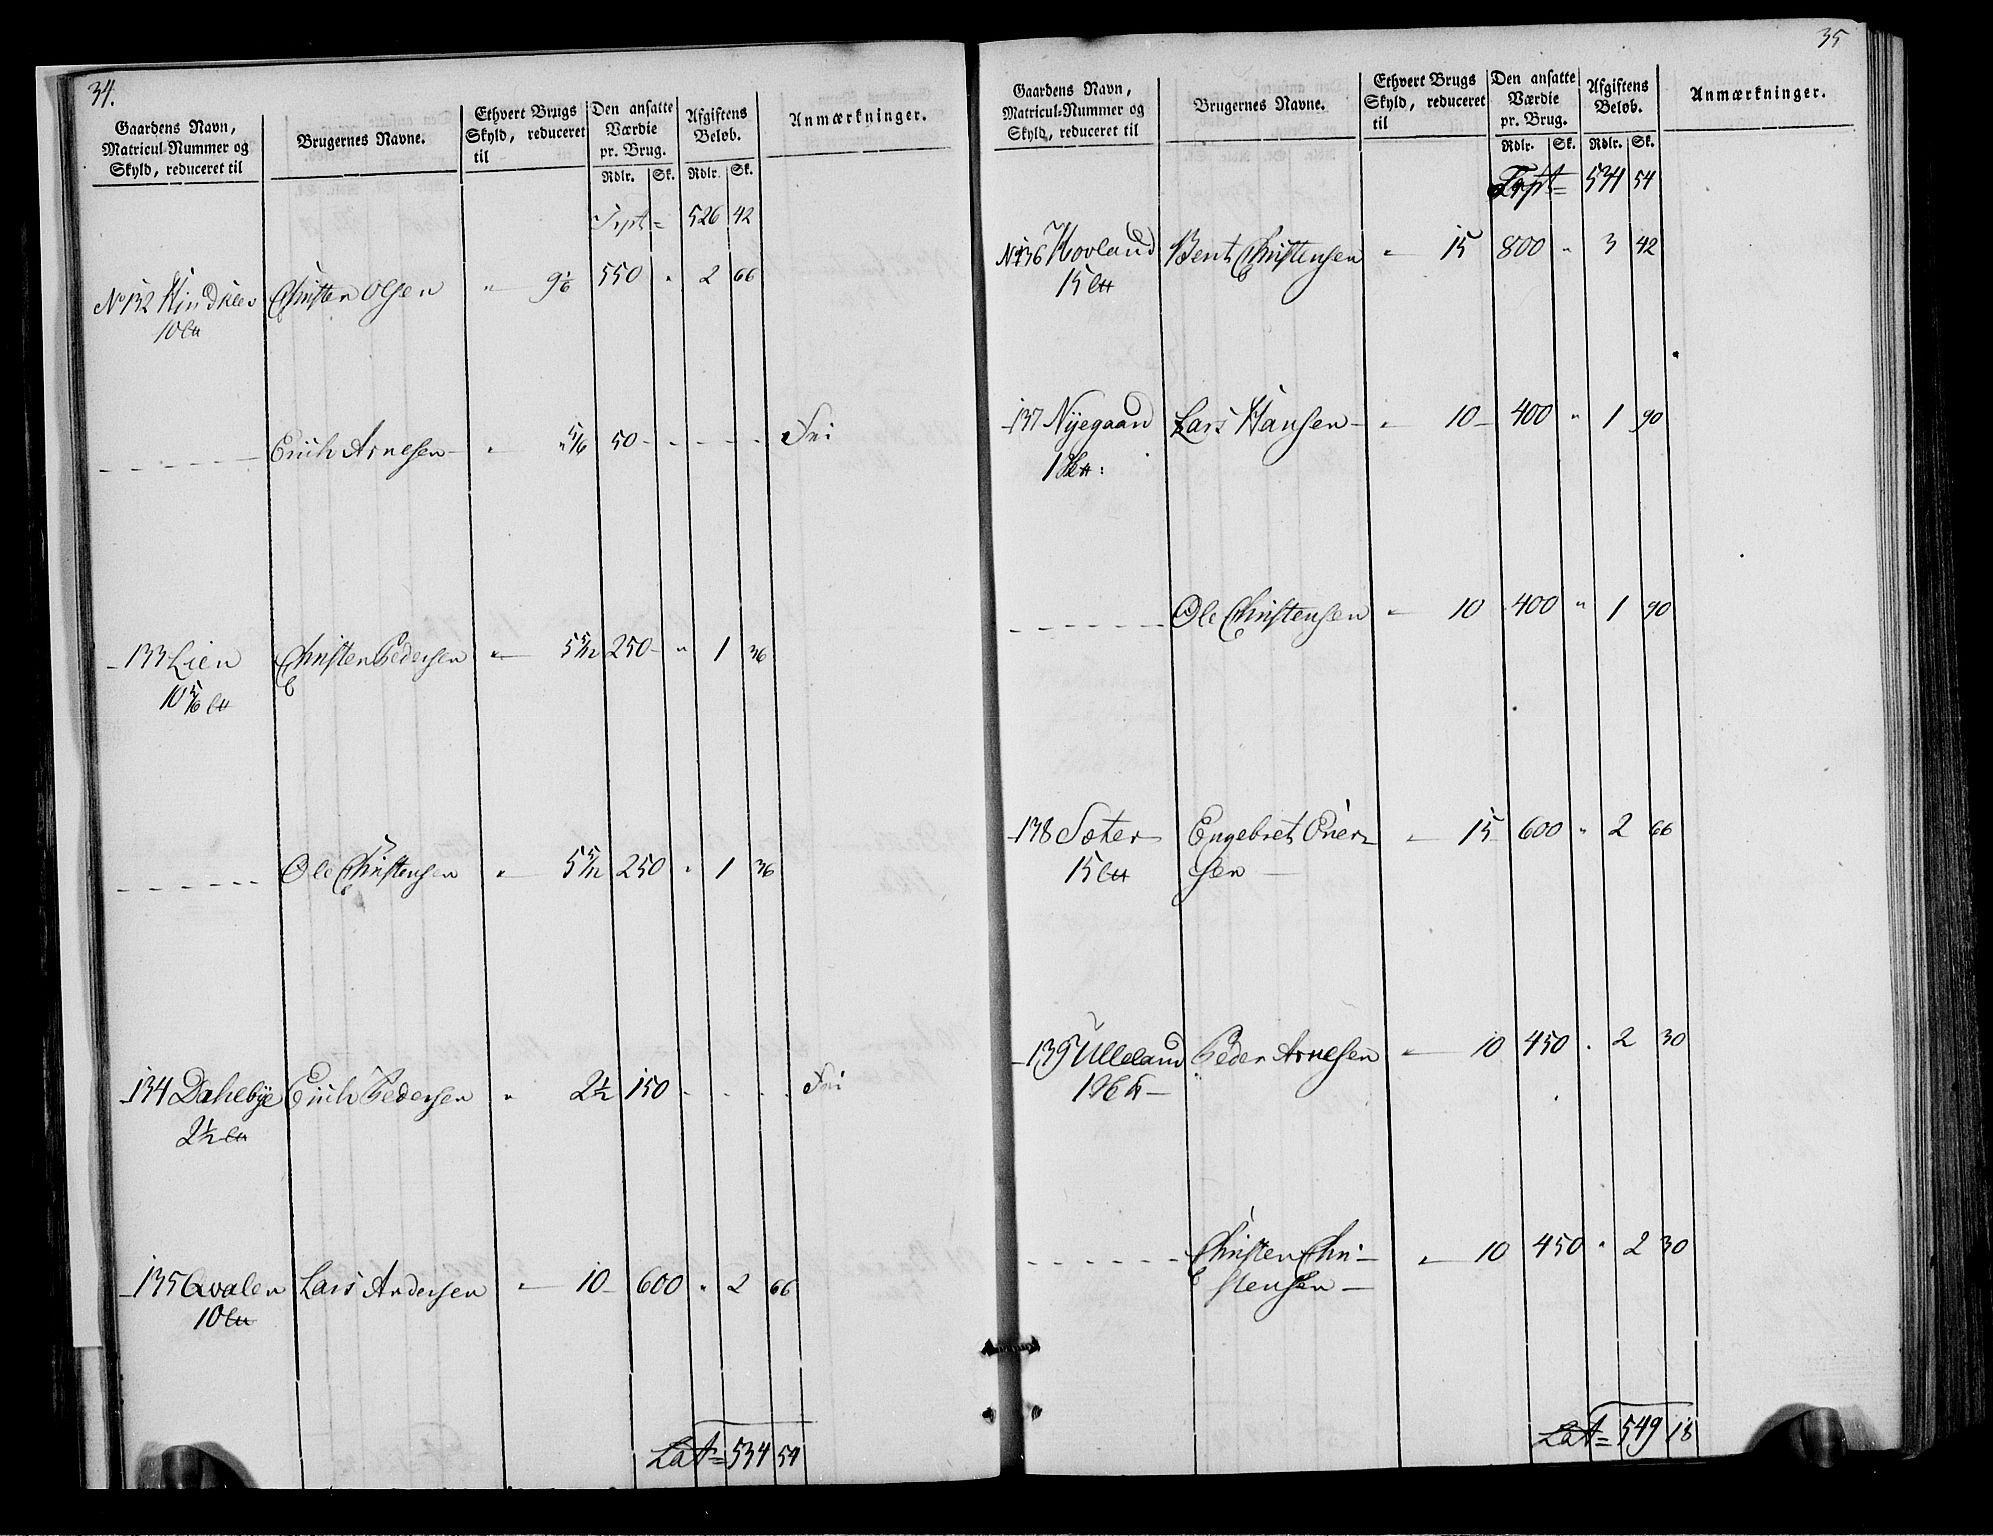 34.
Gaardens Navn, Matricul-Nummer og Skyld, reduceret til
Brugernes Navne.
Ethvert Brugs Skyld, reduceret til
Den ansatte Værdie pr. Brug.
Rdlr. Sk.
Afgiftens Beløb.
Rdlr. Sk.
Anmærkninger.
Trpt = 526 42
No 132 Hindklev Christen Olsen " 9 1/6 550 " 2 66
10 LH
Erich Arnesen " 5/6 50 - - - - Fri
133 Lien Christen Pedersen " 5 5/12 250 " 1 36
10 5/6 LH
Ole Christensen " 5 5/12 250 " 1 36
134 Dahlebye Erich Pedersen " 2 1/2 150 - - - Fri
2 1/2 LH
135 Qvalen Lars Andersen " 10 600 " 2 66
10 LH
Lat = 534 54
35
Gaardens Navn, Matricul-Nummer og Skyld, reduceret til
Brugernes Navne.
Ethvert Brugs Skyld, reduceret til
Den ansatte Værdie pr. Brug.
Rdlr. Sk.
Afgiftens Beløb.
Rdlr. Sk.
Anmærkninger.
Trpt = 534 54
No 136 Hovland Bent Christensen " 15 800 " 3 42
15 LH
137 Nyegaard Lars Hansen " 10 400 " 1 90
Ole Christensen " 10 400 " 1 90
138 Sæter Engebret Iver-
15 LH sen " 15 600 " 2 66
139 Ulleland Peder Arnesen " 10 450 " 2 30
Christen Chri- " 10 450 " 2 30
stensen
Lat = 549 18